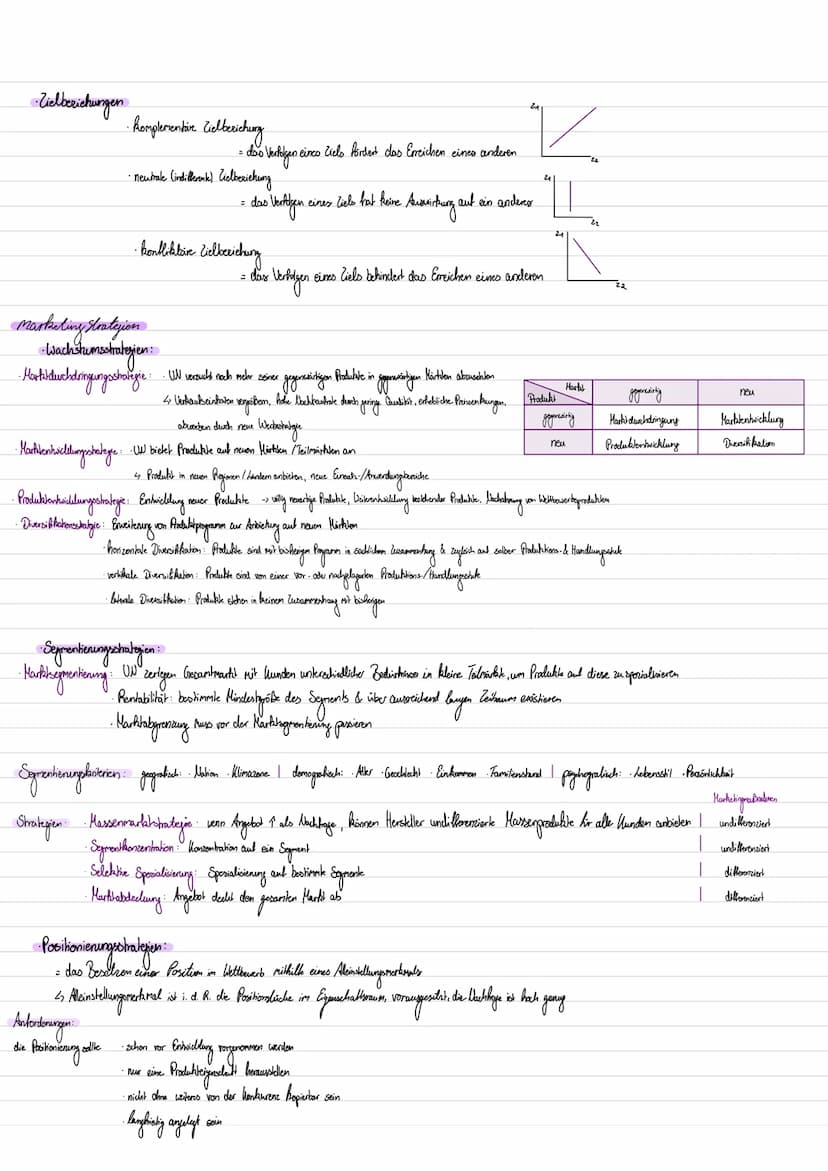 · Zielbeziehungen
· komplementäre Zielbeziehung
= das Verfolgen eines Ziels fördert das Erreichen eines anderen
z1
z2
· neutrale (indifferente) Zielbeziehung
= das Verfolgen eines Ziels hat keine Auswirkung auf ein anderes
z1
z2
· konfliktäre Zielbeziehung
= das Verfolgen eines Ziels behindert das Erreichen eines anderen
z1
z2
Marketingstrategien
· Wachstumsstrategien:
· Marktdurchdringungsstrategie: · UN versucht noch mehr seiner gegenwärtigen Produkte in gegenwärtigen Märkten abzusetzen
↳ Verkaufseinheiten vergrößern, hohe Nachkaufrate durch geringe Qualität, erhebliche Preissenkungen,
abwerben durch neue Werbestrategie
Markt
Produkt
gegenwärtig
neu
gegenwärtig
Marktdurchdringung
Marktentwicklung
neu
Produktentwicklung
Diversifikation
· Marktentwicklungsstrategie: · UN bietet Produkte auf neuen Märkten / Teilmärkten an
↳ Produkt in neuen Regionen / Ländern anbieten, neue Einsatz-/Anwendungsbereiche
· Produktentwicklungsstrategie: Entwicklung neuer Produkte → völlig neuartige Produkte, Weiterentwicklung bestehender Produkte, Nachahmung von Wettbewerbsprodukten
· Diversifikationsstrategie: Erweiterung von Produktprogramm zur Anbietung auf neuen Märkten
· horizontale Diversifikation: Produkte sind mit bisherigen Programm in sachlichem Zusammenhang & zugleich auf selber Produktions- & Handlungsstufe
· vertikale Diversifikation: Produkte sind von einer vor- oder nachgelagerten Produktions-/Handlungsstufe
· laterale Diversifikation: Produkte stehen in keinem Zusammenhang mit bisherigen
· Segmentierungsstrategien:
· Marktsegmentierung: UN zerlegen Gesamtmarkt mit Kunden unterschiedlicher Bedürfnisse in kleine Teilmärkte, um Produkte auf diese zu spezialisieren
· Rentabilität: bestimmte Mindestgröße des Segments & über ausreichend langen Zeitraum existieren
· Marktabgrenzung muss vor der Marktsegmentierung passieren
Segmentierungskriterien: geografisch: · Nation · Klimazone | demografisch: · Alter · Geschlecht · Einkommen · Familienstand | psychografisch: · Lebensstil · Persönlichkeit
Strategien · Massenmarktstrategie · wenn Angebot ↑ als Nachfrage, können Hersteller undifferenzierte Massenprodukte für alle Kunden anbieten | undifferenziert
· Segmentkonzentration: Konzentration auf ein Segment | undifferenziert
· Selektive Spezialisierung: Spezialisierung auf bestimmte Segmente | differenziert
· Marktabdeckung: Angebot deckt den gesamten Markt ab | differenziert
· Positionierungsstrategien:
= das Besetzen einer Position im Wettbewerb mithilfe eines Alleinstellungsmerkmals
↳ Alleinstellungsmerkmal ist i. d. R. die Positionslücke im Eigenschaftsraum, vorausgesetzt, die Nachfrage ist hoch genug
Anforderungen:
die Positionierung sollte · schon vor Entwicklung vorgenommen werden
· nur eine Produkteigenschaft herausstellen
· nicht ohne weiteres von der Konkurrenz kopierbar sein
· langfristig angelegt sein